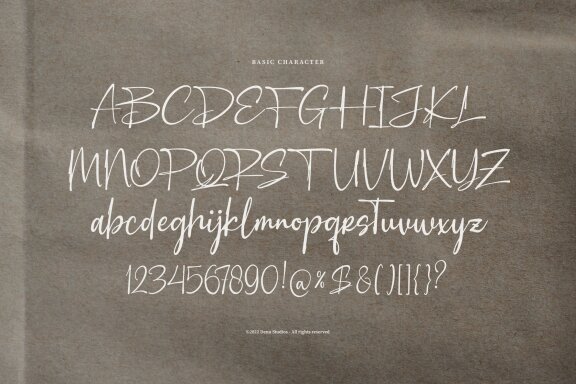 BASIC CHARACTER
ABCDEFGHIJKL
MNOPQRSTUVWXYZ
abcdeghijklmnopqrstuvwxyz
1234567890!@%$&()[]{}?
©2022 Dena Studios - All rights reserved